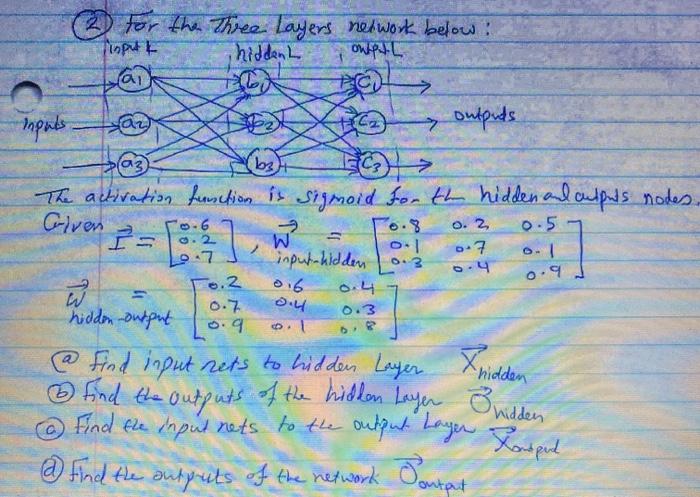 ② For the Three Layers network below:
input L hidden L output L
a1 b1 C1
inputs a2 b2 C2 outputs
a3 b3 C3
The activation function is sigmoid for th hidden and outputs nodes.
Given I = [0.6 0.2 0.7], W input-hidden = [0.8 0.2 0.5
0.1 0.7 0.1
0.3 0.4 0.9]
W hidden-output = [0.2 0.6 0.4
0.7 0.4 0.3
0.9 0.1 0.8]
ⓐ find input nets to hidden Layer X hidden
ⓑ find the outputs of the hidden Layer O hidden
ⓒ find the input nets to the output Layer X output
ⓓ find the outputs of the network O output